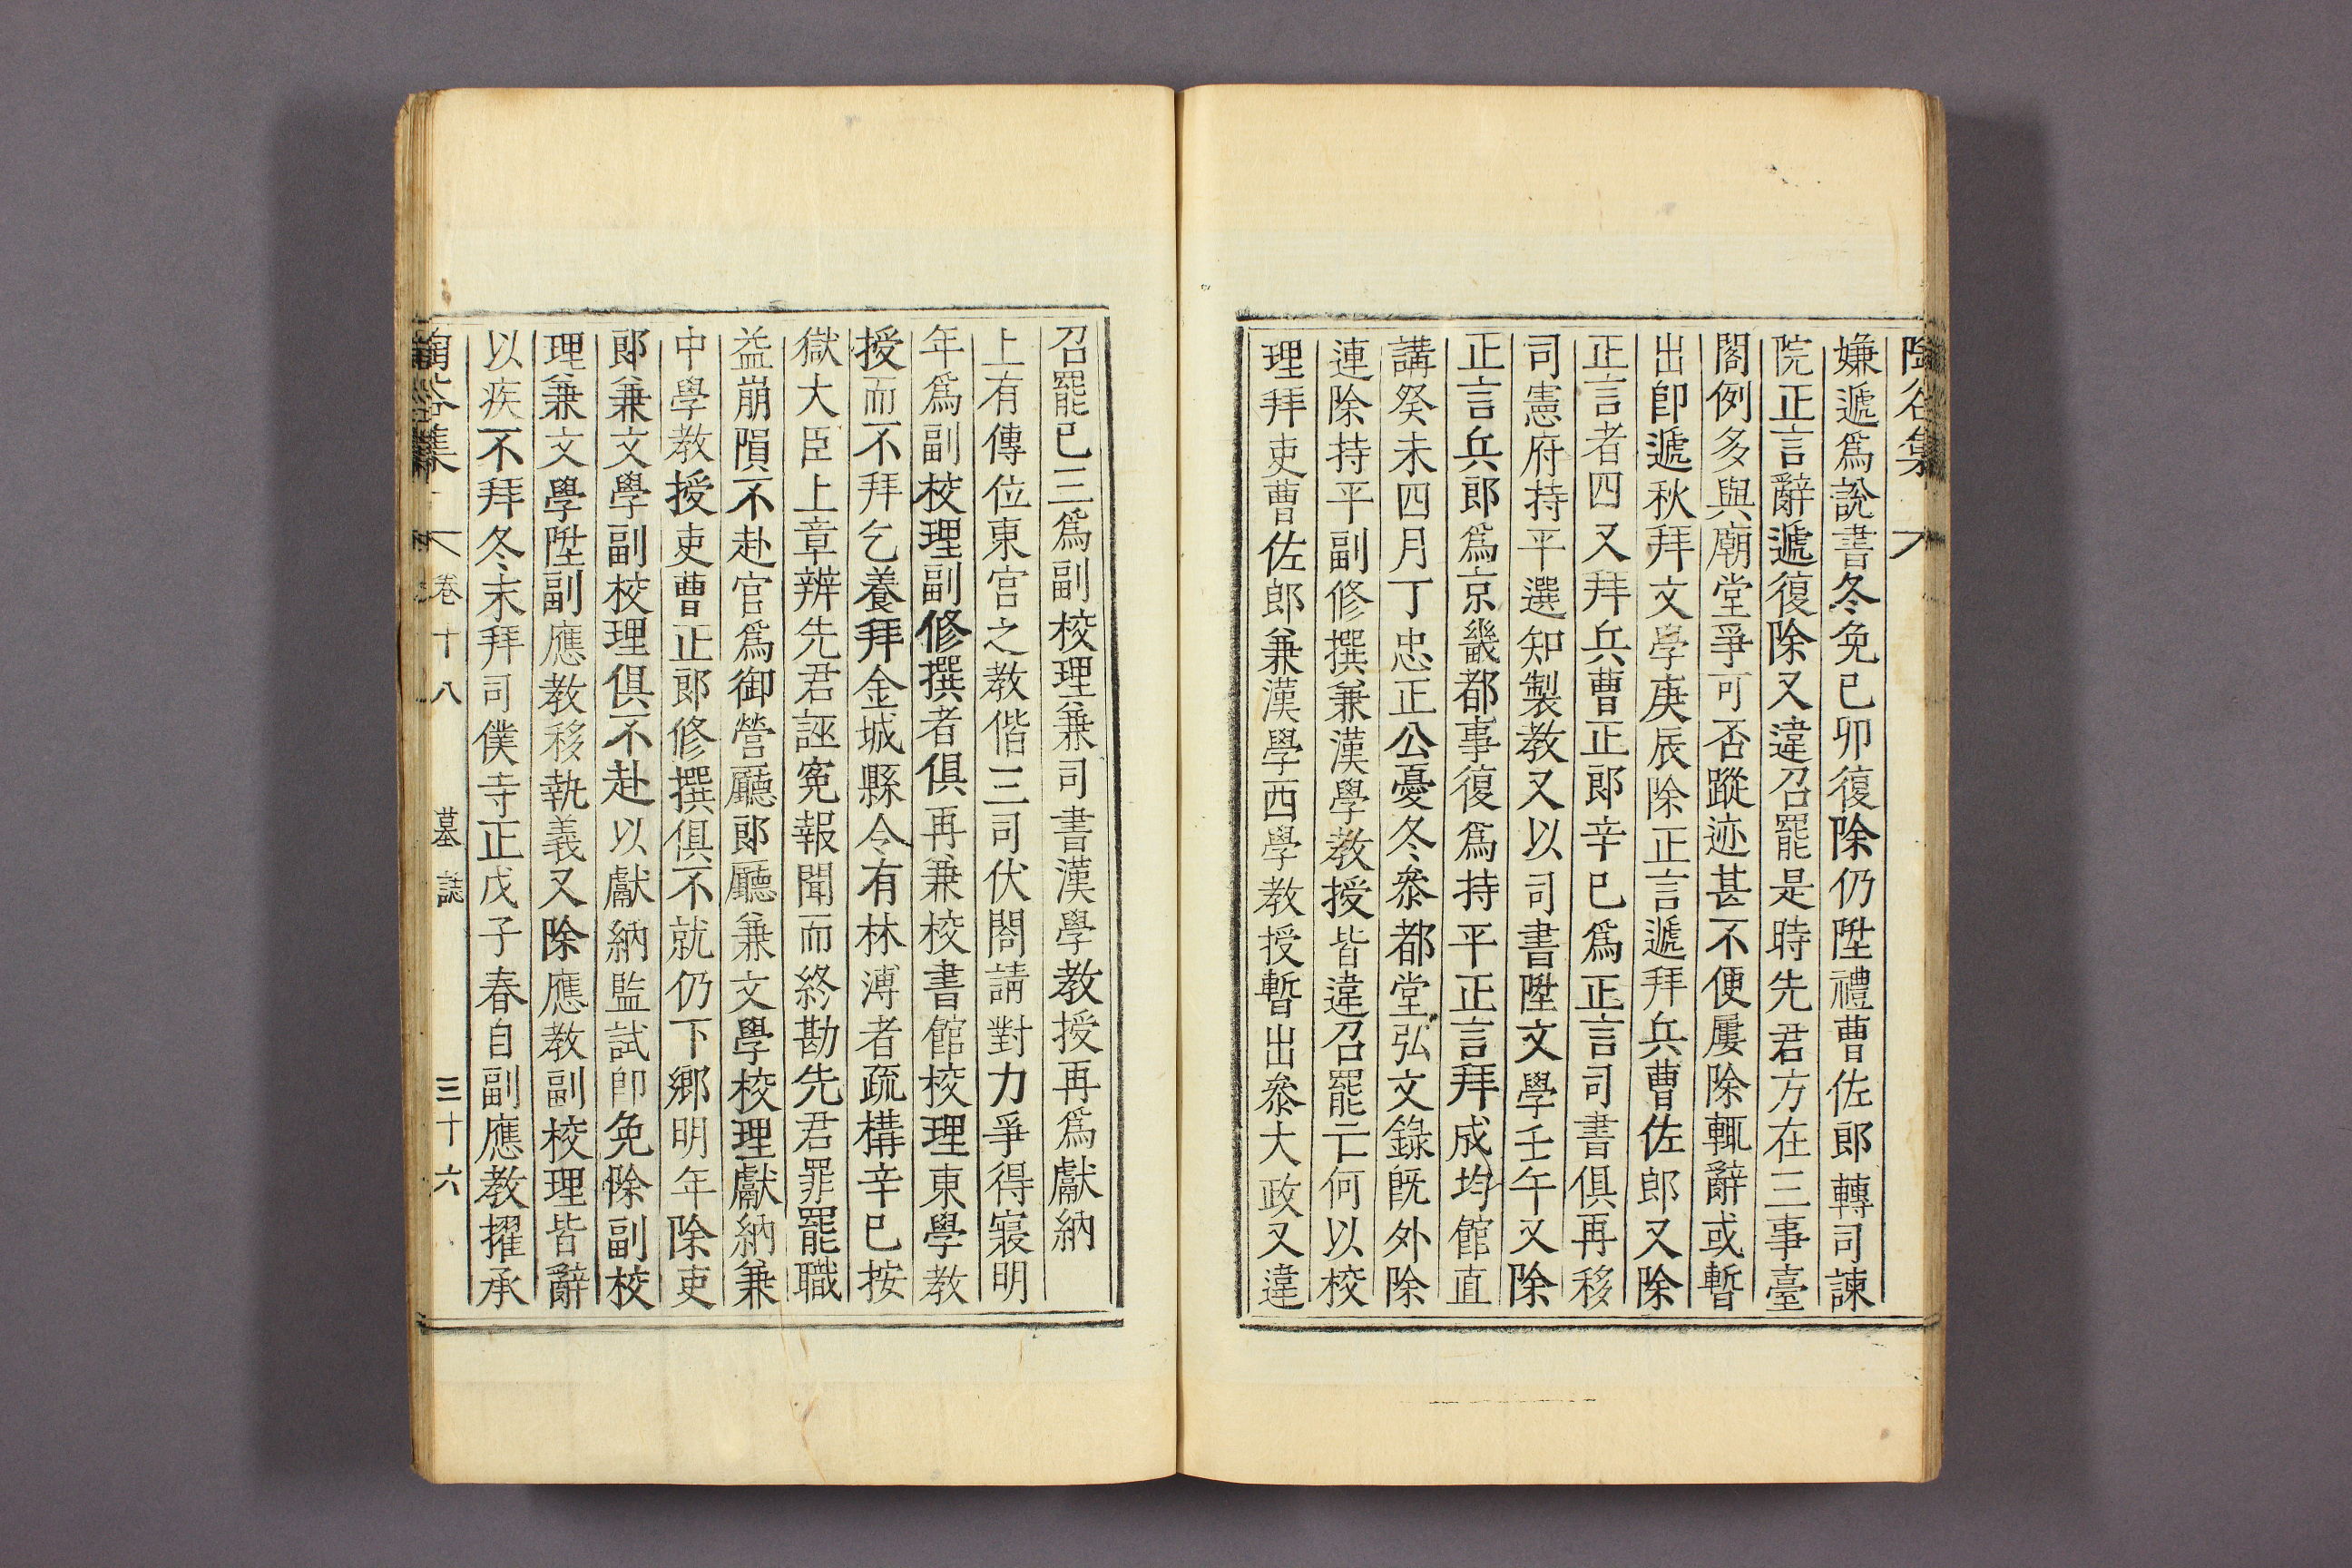 陶谷集
嫌遞爲說書冬免己卯復除仍陞禮曹佐郎轉司諫
院正言辭遞復除又違召罷是時先君方在三事臺
閣例多與廟堂爭可否蹤迹甚不便屢除輒辭或暫
出卽遞秋拜文學庚辰除正言遞拜兵曹佐郎又除
正言者四又拜兵曹正郎辛巳爲正言司書俱再移
司憲府持平選知製教又以司書陞文學壬午又除
正言兵郎爲京畿都事復爲持平正言拜成均館直
講癸未四月丁忠正公憂冬叅都堂弘文錄旣外除
連除持平副修撰兼漢學教授皆違召罷亡何以校
理拜吏曹佐郎兼漢學西學教授暫出叅大政又違
召罷已三爲副校理兼司書漢學教授再爲獻納
上有傳位東宮之教偕三司伏閤請對力爭得寢明
年爲副校理副修撰者俱再兼校書館校理東學教
授而不拜乞養拜金城縣令有林溥者疏構辛巳按
獄大臣上章辨先君誣寃報聞而終勘先君罪罷職
益崩隕不赴官爲御營廳郞廳兼文學校理獻納兼
中學教授吏曹正郎修撰俱不就仍下鄕明年除吏
郎兼文學副校理俱不赴以獻納監試卽免除副校
理兼文學陞副應教移執義又除應教副校理皆辭
以疾不拜冬末拜司僕寺正戊子春自副應教擢承
陶谷集 卷十八 墓誌 三十六